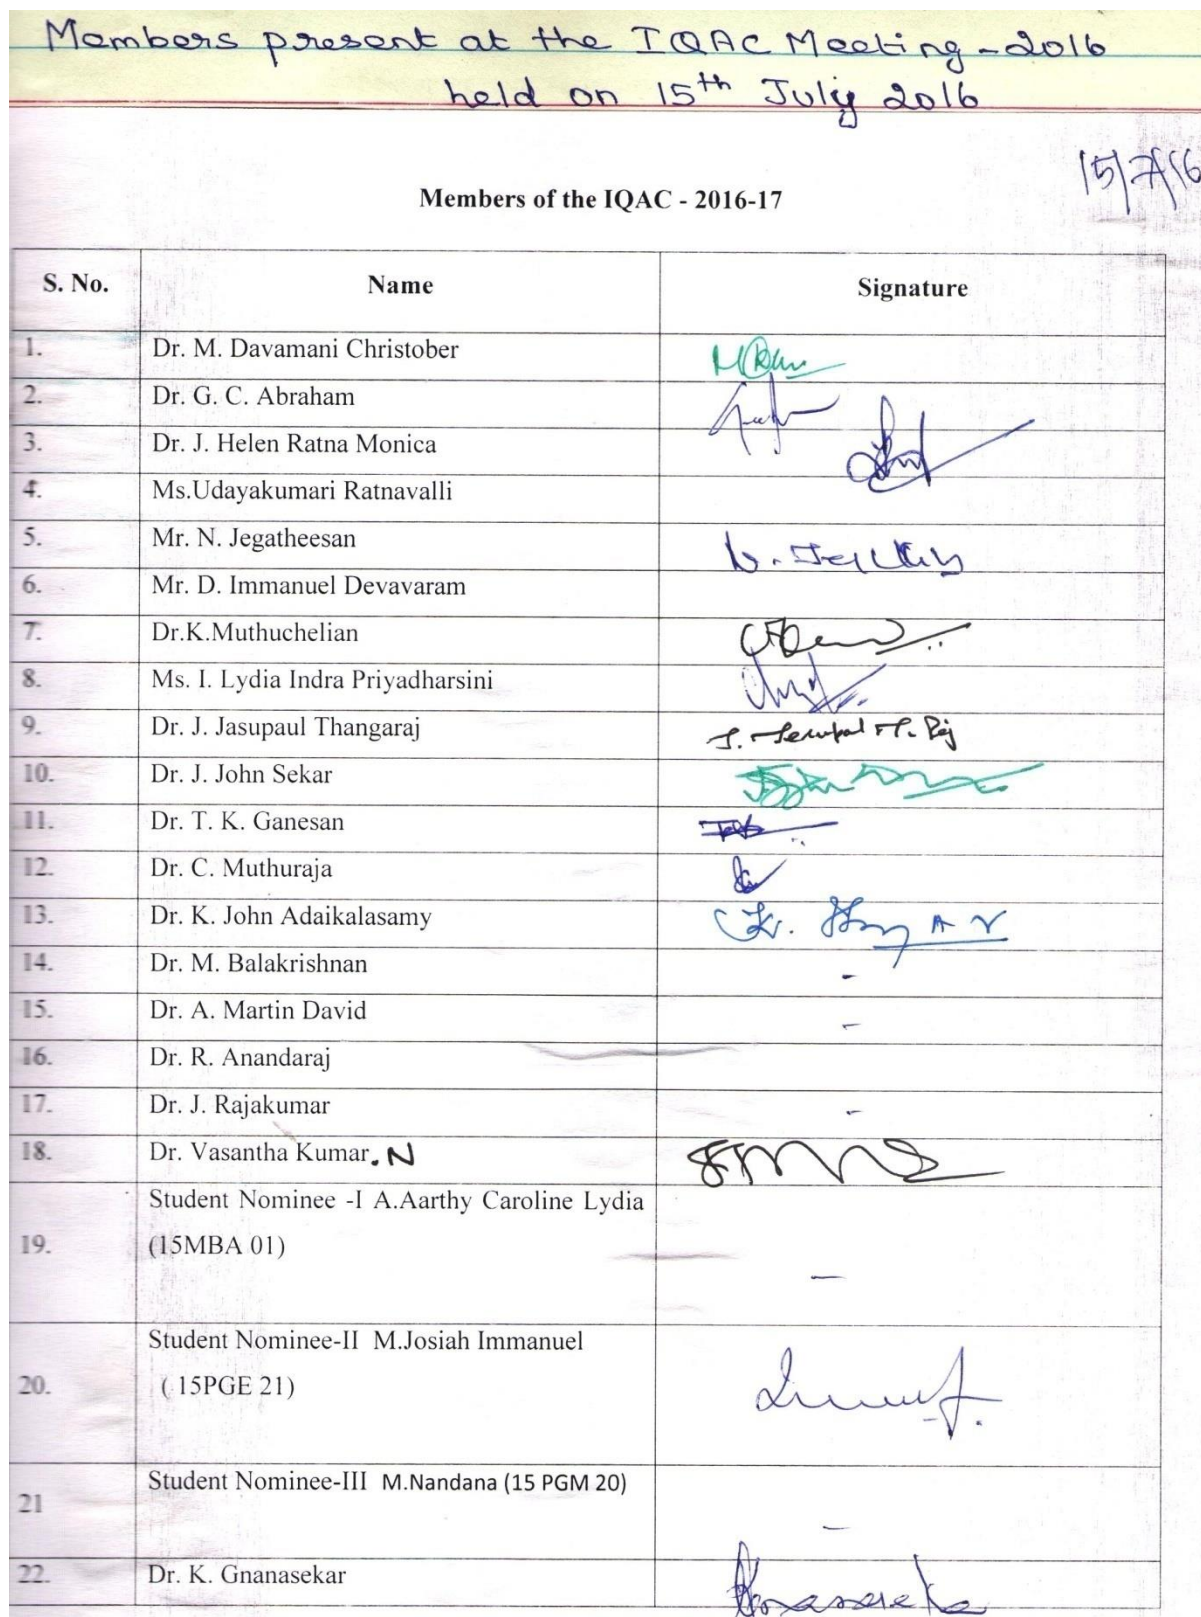 Members present at the IQAC Meeting - 2016
held on 15th July 2016
15/7/16
Members of the IQAC - 2016-17
S. No. Name Signature
1. Dr. M. Davamani Christober
2. Dr. G. C. Abraham
3. Dr. J. Helen Ratna Monica
4. Ms.Udayakumari Ratnavalli
5. Mr. N. Jegatheesan
6. Mr. D. Immanuel Devavaram
7. Dr.K.Muthuchelian
8. Ms. I. Lydia Indra Priyadharsini
9. Dr. J. Jasupaul Thangaraj
10. Dr. J. John Sekar
11. Dr. T. K. Ganesan
12. Dr. C. Muthuraja
13. Dr. K. John Adaikalasamy
14. Dr. M. Balakrishnan -
15. Dr. A. Martin David -
16. Dr. R. Anandaraj
17. Dr. J. Rajakumar -
18. Dr. Vasantha Kumar. N
Student Nominee -I A.Aarthy Caroline Lydia
19. (15MBA 01)
-
Student Nominee-II M.Josiah Immanuel
20. ( 15PGE 21)
Student Nominee-III M.Nandana (15 PGM 20)
21
-
22. Dr. K. Gnanasekar